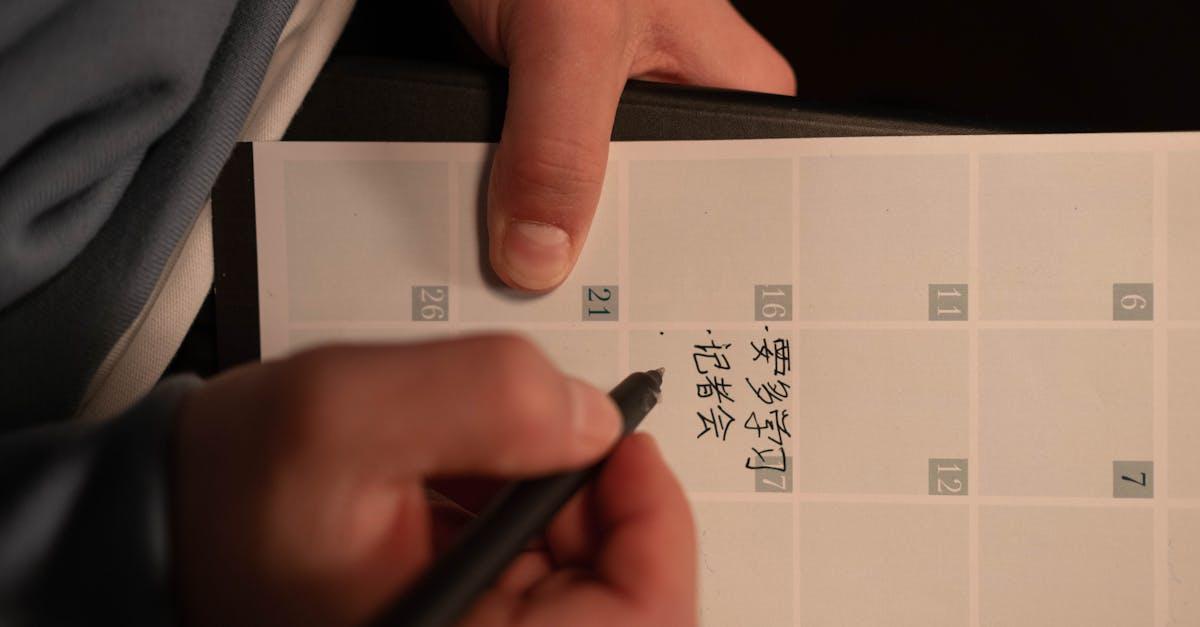 6 7
11 12
16 17
·要多学习
·记者会
·
21
26